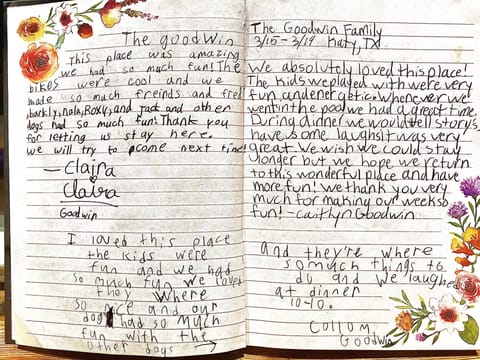 The goodwin
This place was amazing
we had so much fun! The
bikes were cool and we
made so much freinds and frel
barkly, nola, Roxy, and Jack and other
dogs had so much fun! Thank you
for letting us stay here.
we will try to come next time!
— Claira
Claira
Goodwin
I loved this place
the kids were
fun and we had
so much fun we loved
they where
so nice and our
dog had so much
fun with the
other dogs →
The Goodwin Family
3/15 - 3/19 Katy, TX
We absolutely loved this place!
The kids we played with were very
fun and energetic. Whenever we
went in the pool we had a great time.
During dinner we would tell story's
have some laughs it was very
great. We wish we could stay
longer but we hope we return
to this wonderful place and have
more fun! we thank you very
much for making our week so
fun! - Caitlyn Goodwin
and they're where
so much things to
do and we laughed
at dinner
10-10.
Collom
Goodwin